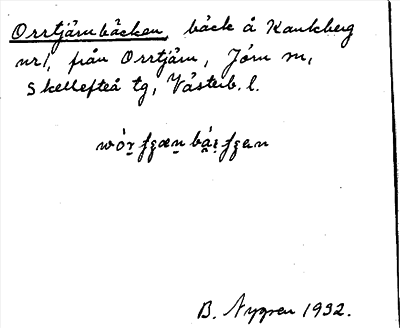 Orrtjärnbäcken, bäck å Kankberg
nr 1, från Orrtjärn, Jörn sn,
Skellefteå tg, Västerb. l.
B. Nygren 1932.